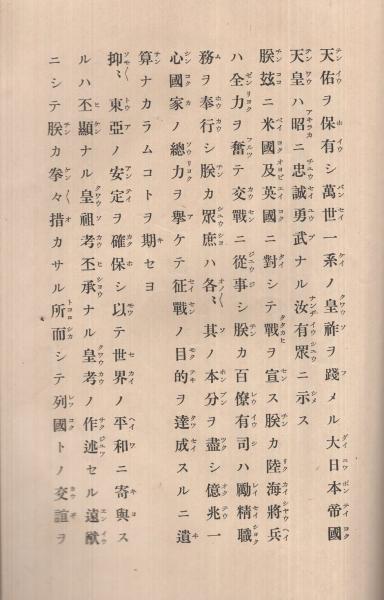 天佑ヲ保有シ萬世一系ノ皇祚ヲ踐メル大日本帝國
天皇ハ昭ニ忠誠勇武ナル汝有眾ニ示ス
朕玆ニ米國及英國ニ對シテ戰ヲ宣ス朕カ陸海將兵
ハ全力ヲ奮テ交戰ニ從事シ朕カ百僚有司ハ勵精職
務ヲ奉行シ朕カ眾庶ハ各〻其ノ本分ヲ盡シ億兆一
心國家ノ總力ヲ擧ケテ征戰ノ目的ヲ達成スルニ遺
算ナカラムコトヲ期セヨ
抑〻東亞ノ安定ヲ確保シ以テ世界ノ平和ニ寄與ス
ルハ丕顯ナル皇祖考丕承ナル皇考ノ作述セル遠猷
ニシテ朕カ拳々措カサル所而シテ列國トノ交誼ヲ